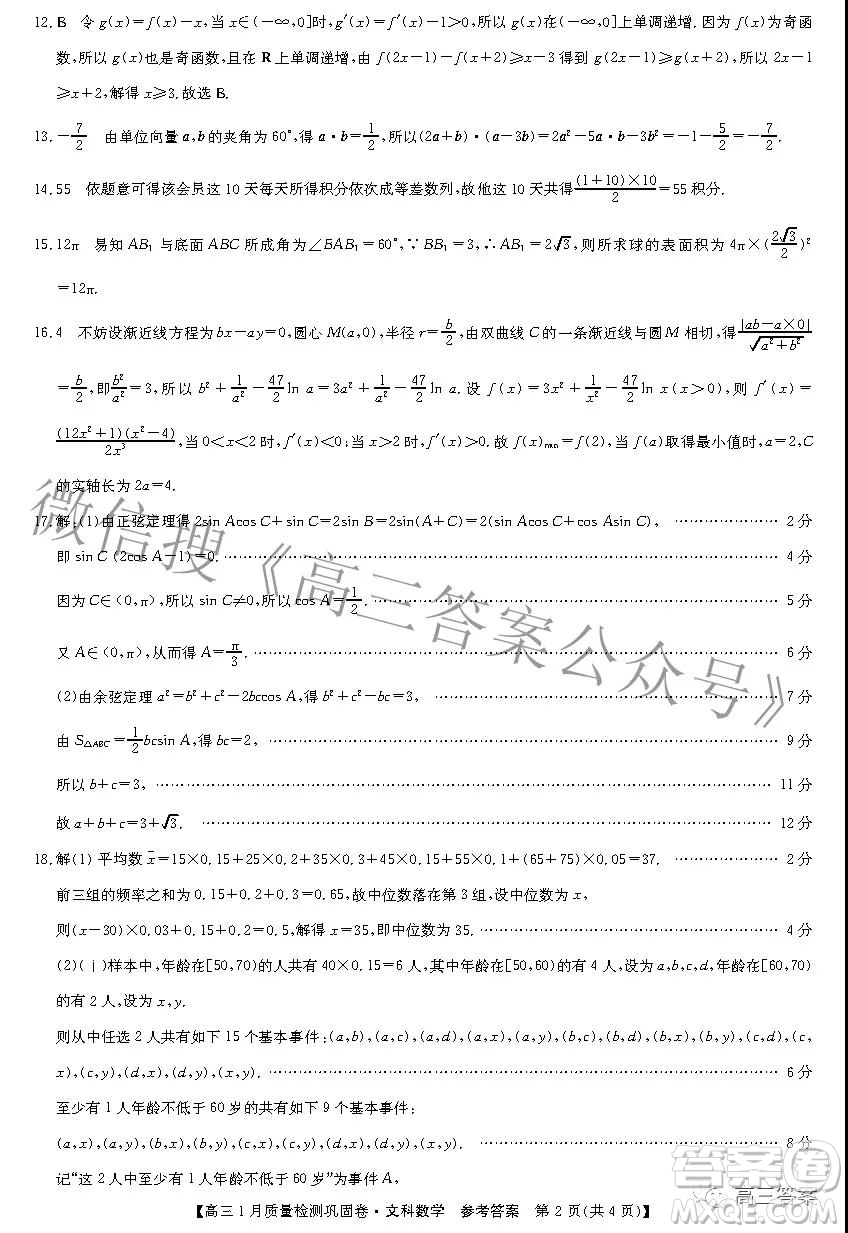 12. B 令 g(x)=f(x)-x,当 x∈(-∞,0]时,g′(x)=f′(x)-1>0,所以 g(x)在(-∞,0]上单调递增.因为 f(x)为奇函
数,所以 g(x)也是奇函数,且在 R 上单调递增,由 f(2x-1)-f(x+2)≥x-3 得到 g(2x-1)≥g(x+2),所以 2x-1
≥x+2,解得 x≥3.故选 B.
13. -7/2 由单位向量 a,b的夹角为 60°,得 a·b=1/2,所以(2a+b)·(a-3b)=2a²-5a·b-3b²=-1-5/2=-7/2.
14. 55 依题意可得该会员这 10 天每天所得积分依次成等差数列,故他这 10 天共得(1+10)×10/2=55 积分.
15. 12π 易知 AB₁ 与底面 ABC 所成角为∠BAB₁=60°,∵BB₁=3,∴AB₁=2√3,则所求球的表面积为 4π×(2√3/2)²
=12π.
16. 4 不妨设渐近线方程为 bx-ay=0,圆心 M(a,0),半径 r=b/2,由双曲线 C 的一条渐近线与圆 M 相切,得|ab-a×0|/√(a²+b²)
=b/2,即b²/a²=3,所以 b²+1/a²-47/2 ln a=3a²+1/a²-47/2 ln a.设 f(x)=3x²+1/x²-47/2 ln x(x>0),则 f′(x)=
(12x²+1)(x²-4)/2x³,当 0<x<2 时,f′(x)<0;当 x>2 时,f′(x)>0.故 f(x)min=f(2),当 f(a)取得最小值时,a=2,C
的实轴长为 2a=4.
17. 解:(1)由正弦定理得 2sin Acos C+sin C=2sin B=2sin(A+C)=2(sin Acos C+cos Asin C), ………………… 2 分
即 sin C (2cos A-1)=0. ………………… 4 分
因为 C∈(0,π),所以 sin C≠0,所以 cos A=1/2. ………………… 5 分
又 A∈(0,π),从而得 A=π/3. ………………… 6 分
(2)由余弦定理 a²=b²+c²-2bccos A,得 b²+c²-bc=3, ………………… 7 分
由 S△ABC=1/2 bcsin A,得 bc=2, ………………… 9 分
所以 b+c=3, ………………… 11 分
故 a+b+c=3+√3. ………………… 12 分
18. 解(1) 平均数 x̄=15×0.15+25×0.2+35×0.3+45×0.15+55×0.1+(65+75)×0.05=37. ………………… 2 分
前三组的频率之和为 0.15+0.2+0.3=0.65,故中位数落在第 3 组,设中位数为 x,
则(x-30)×0.03+0.15+0.2=0.5,解得 x=35,即中位数为 35. ………………… 4 分
(2)(ⅰ)样本中,年龄在[50,70)的人共有 40×0.15=6 人,其中年龄在[50,60)的有 4 人,设为 a,b,c,d,年龄在[60,70)
的有 2 人,设为 x,y.
则从中任选 2 人共有如下 15 个基本事件:(a,b),(a,c),(a,d),(a,x),(a,y),(b,c),(b,d),(b,x),(b,y),(c,d),(c,
x),(c,y),(d,x),(d,y),(x,y). ………………… 6 分
至少有 1 人年龄不低于 60 岁的共有如下 9 个基本事件:
(a,x),(a,y),(b,x),(b,y),(c,x),(c,y),(d,x),(d,y),(x,y). ………………… 8 分
记“这 2 人中至少有 1 人年龄不低于 60 岁”为事件 A,
【高三 1 月质量检测巩固卷·文科数学 参考答案 第 2 页(共 4 页)】
微信搜《高三答案公众号》
高三答案
答案圈
MXQE.COM